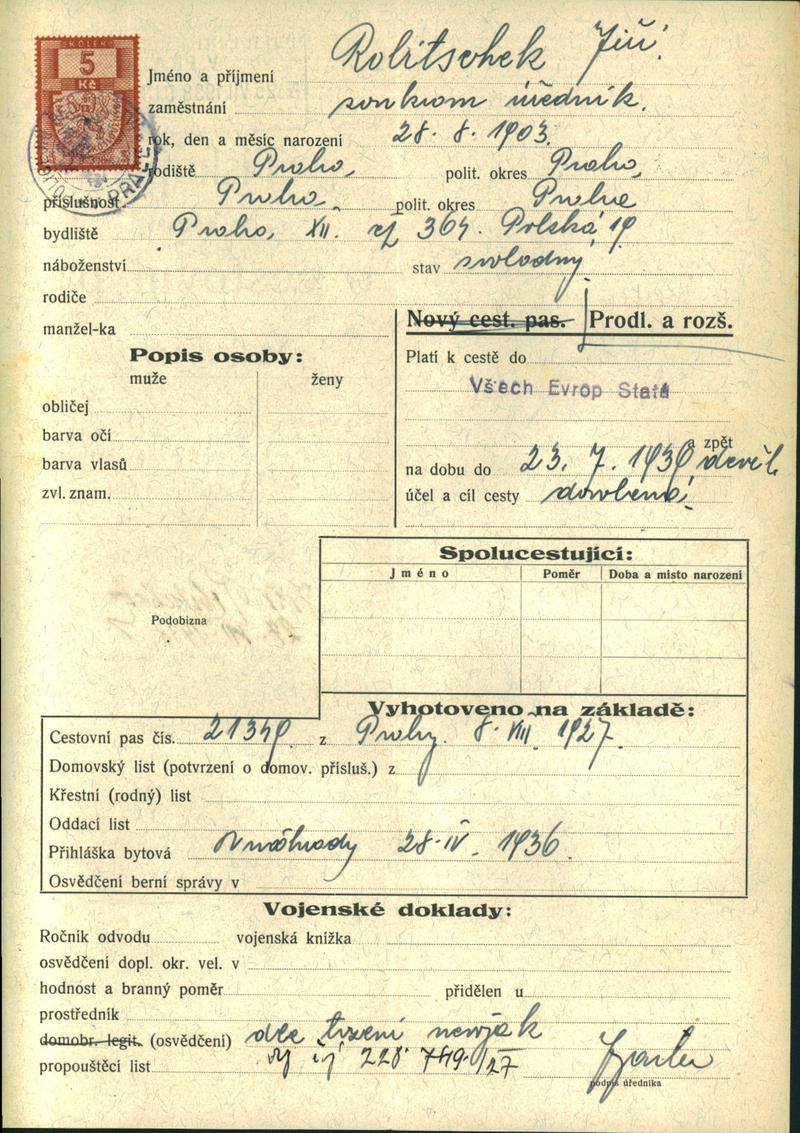 KOLEK
5
Kč
PRA
Jméno a příjmení Jiří
zaměstnání soukrom úředník.
rok, den a měsíc narození 28. 8. 1903.
rodiště Praha, polit. okres Praha,
příslušnost Praha polit. okres Praha
bydliště Praha, XII. čj 364. Polská 19
náboženství stav svobodný
rodiče
manžel-ka
Nový cest. pas. Prodl. a rozš.
Popis osoby:
muže ženy
obličej
barva očí
barva vlasů
zvl. znam.
Platí k cestě do
Všech Evrop Států
a zpět
na dobu do 23. 7. 1939 devět
účel a cíl cesty dovolená
Spolucestující:
Jméno Poměr Doba a místo narození
Podobizna
Vyhotoveno na základě:
Cestovní pas čís. 21349 z Prahy. 8. VIII. 1927.
Domovský list (potvrzení o domov. přísluš.) z
Křestní (rodný) list
Oddací list
Přihláška bytová Vinohrady 28. IV. 1936.
Osvědčení berní správy v
Vojenské doklady:
Ročník odvodu vojenská knížka
osvědčení dopl. okr. vel. v
hodnost a branný poměr přidělen u
prostředník
domobr. legit. (osvědčení) dle tvrzení nevoják
propouštěcí list čj 228.749/27
podpis úředníka